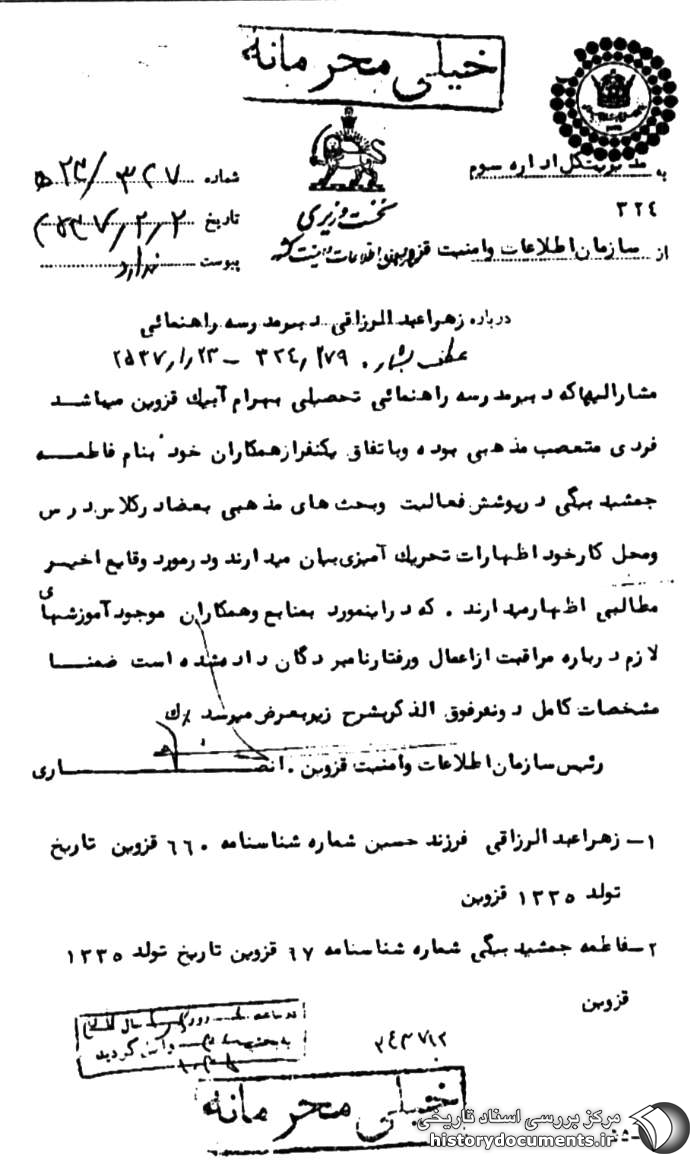 خیلی محرمانه
به مدیریت کل اداره سوم
۳۲٤
از سازمان اطلاعات و امنیت قزوین
نخست وزیری
سازمان اطلاعات و امنیت کشور
شماره ۳۲۷/۲۳ ه
تاریخ ۲۵۳۷/۲/۲
پیوست ندارد
درباره زهرا عبدالرزاقی دبیر مدرسه راهنمائی
عطف بشماره ۳۲٤/۲۷۹ – ۲۵۳۷/۱/۲۳
مشارالیها که دبیر مدرسه راهنمائی تحصیلی بهرام آبیك قزوین میباشد
فردی متعصب مذهبی بوده و باتفاق یکنفر از همکاران خود بنام فاطمه
جمشید بیگی در پوشش فعالیت وبحث های مذهبی بعضا در کلاس درس
ومحل کار خود اظهارات تحریك آمیزی بیان میدارند ودر مورد وقایع اخیر
مطالبی اظهار میدارند . که در اینمورد بمنابع وهمکاران موجود آموزشهای
لازم درباره مراقبت از اعمال ورفتار نامبردگان داده شده است ضمنا
مشخصات کامل دونفر فوق الذکر بشرح زیر بعرض میرسد
رئیس سازمان اطلاعات وامنیت قزوین . انصاری
۱– زهرا عبدالرزاقی فرزند حسین شماره شناسنامه ۶۶۰ قزوین تاریخ
تولد ۱۳۳۵ قزوین
۲– فاطمه جمشید بیگی شماره شناسنامه ۶۷ قزوین تاریخ تولد ۱۳۳۵
قزوین
خیلی محرمانه
مرکز بررسی اسناد تاریخی
historydocuments.ir